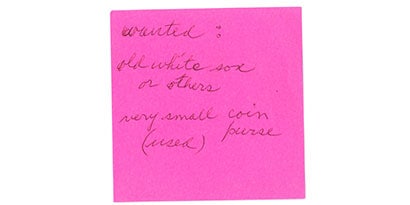 wanted :
old white sox
or others
very small coin
(used) purse